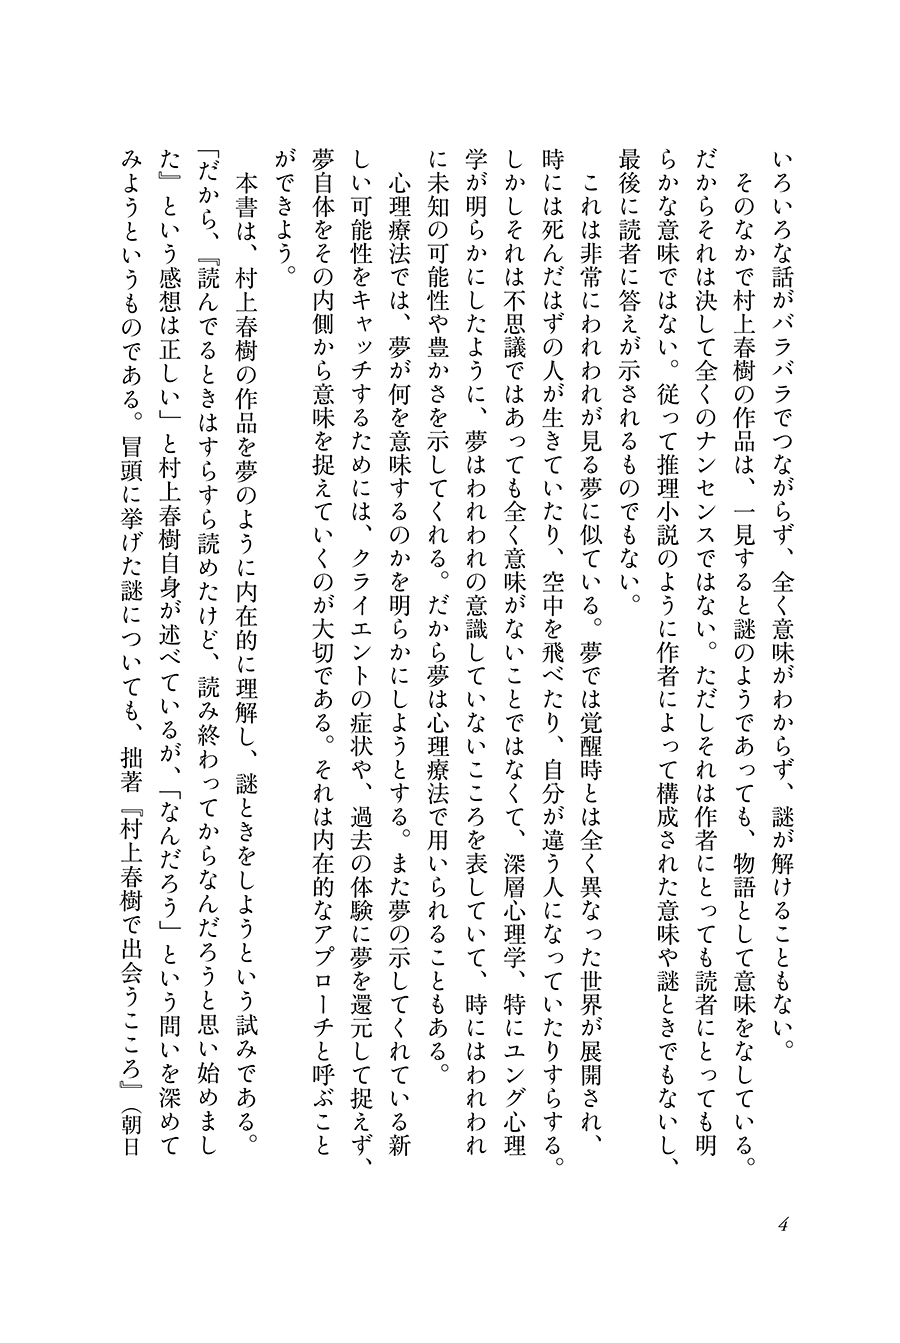 いろいろな話がバラバラでつながらず、全く意味がわからず、謎が解けることもない。
そのなかで村上春樹の作品は、一見すると謎のようであっても、物語として意味をなしている。
だからそれは決して全くのナンセンスではない。ただしそれは作者にとっても読者にとっても明
らかな意味ではない。従って推理小説のように作者によって構成された意味や謎ときでもないし、
最後に読者に答えが示されるものでもない。
これは非常にわれわれが見る夢に似ている。夢では覚醒時とは全く異なった世界が展開され、
時には死んだはずの人が生きていたり、空中を飛べたり、自分が違う人になっていたりすらする。
しかしそれは不思議ではあっても全く意味がないことではなくて、深層心理学、特にユング心理
学が明らかにしたように、夢はわれわれの意識していないこころを表していて、時にはわれわれ
に未知の可能性や豊かさを示してくれる。だから夢は心理療法で用いられることもある。
心理療法では、夢が何を意味するのかを明らかにしようとする。また夢の示してくれている新
しい可能性をキャッチするためには、クライエントの症状や、過去の体験に夢を還元して捉えず、
夢自体をその内側から意味を捉えていくのが大切である。それは内在的なアプローチと呼ぶこと
ができよう。
本書は、村上春樹の作品を夢のように内在的に理解し、謎ときをしようという試みである。
「だから、『読んでるときはすらすら読めたけど、読み終わってからなんだろうと思い始めまし
た』という感想は正しい」と村上春樹自身が述べているが、「なんだろう」という問いを深めて
みようというものである。冒頭に挙げた謎についても、拙著『村上春樹で出会うこころ』（朝日
4